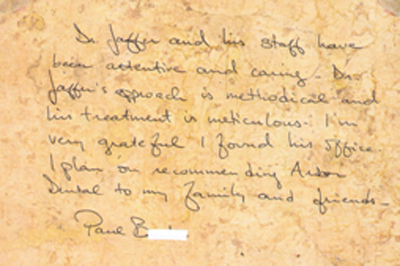 Dr. Jaffer and his staff have
been attentive and caring. Dr.
Jaffer's approach is methodical and
his treatment is meticulous. I'm
very grateful I found his office.
I plan on recommending Arbor
Dental to my family and friends.
Paul B